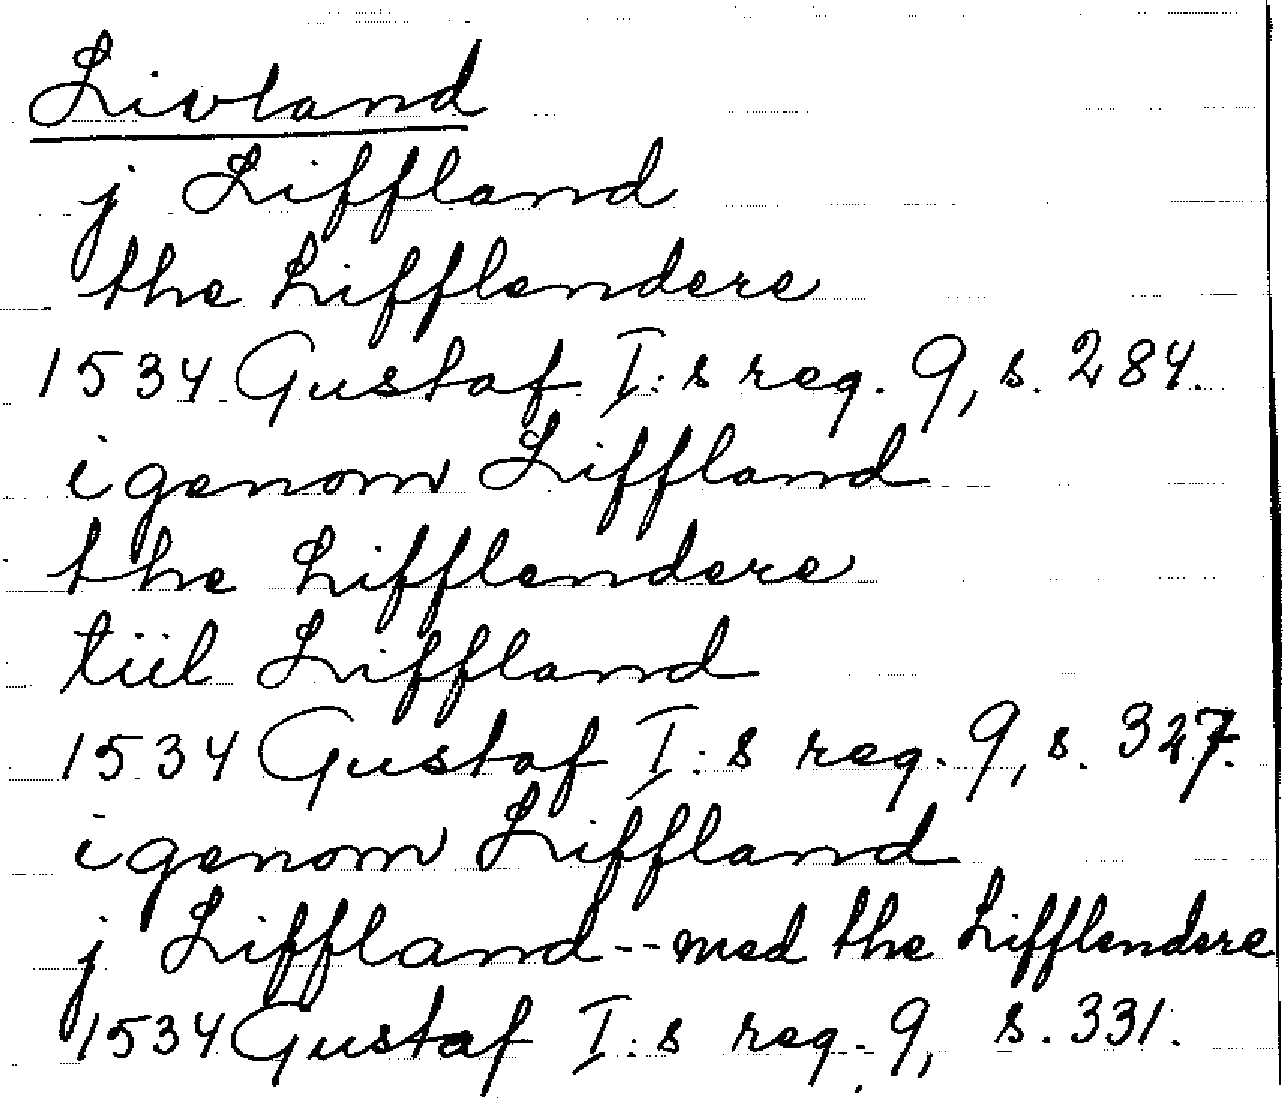 Livland
j Liffland
the Lifflendere
1534 Gustaf I:s reg. 9, s. 284.
igenom Liffland
the Lifflendere
tiil Liffland
1534 Gustaf I:s reg. 9, s. 327.
igenom Liffland
j Liffland -- med the Lifflendere
1534 Gustaf I:s reg. 9, s. 331.